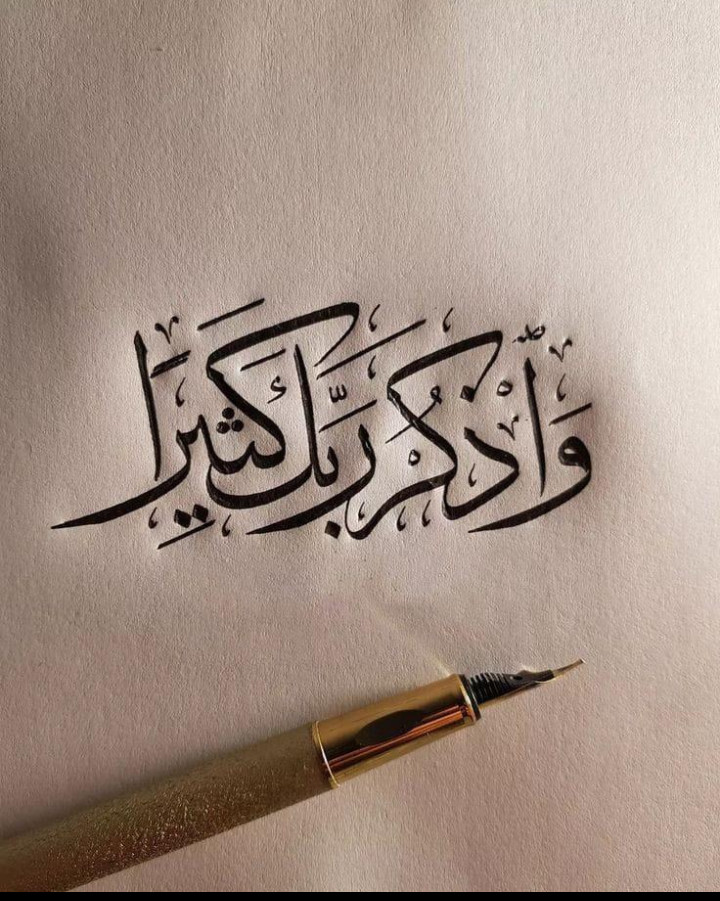 وَٱذْكُرْ رَبَّكَ كَثِيرًا